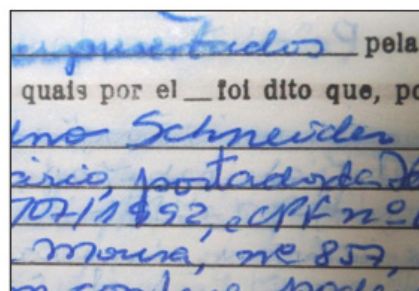 representados pela
quais por el__ foi dito que, po
no Schneider
ário, portador da
707/1992, e CPF nº
Moura, nº 857,